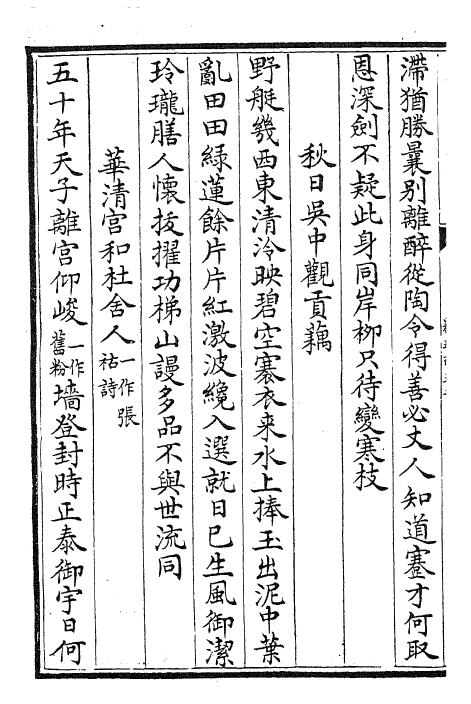 滯猶勝曩别離醉從陶令得善必丈人知道蹇才何取
恩深劍不疑此身同岸柳只待變寒枝
秋日吳中觀貢藕
野艇幾西東清泠映碧空褰衣来水上捧玉出泥中葉
亂田田緑蓮餘片片紅激波纔入選就日已生風御潔
玲瓏膳人懷拔擢功梯山謾多品不與世流同
華清宫和杜舍人一作張祜詩
五十年天子離宫仰峻一作舊粉墻登封時正泰御宇日何